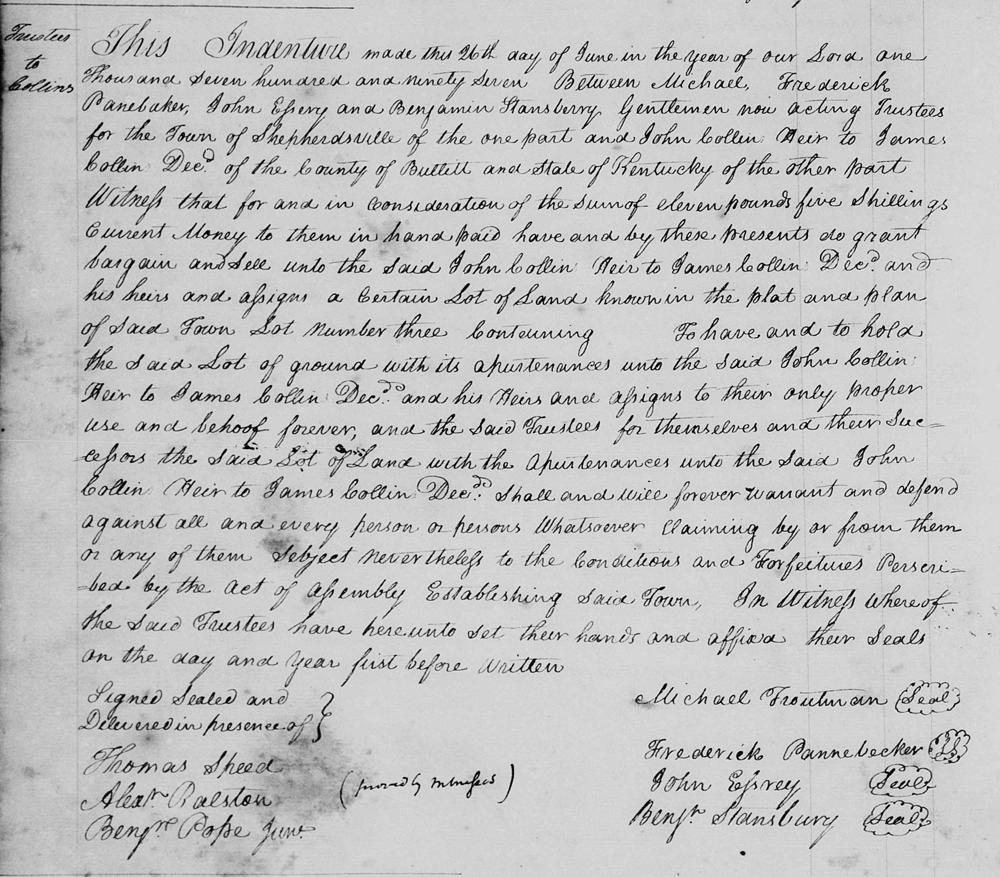 Trustees
to
Collins
This Indenture made this 26th day of June in the year of our Lord one
Thousand Seven hundred and ninety Seven Between Michael, Frederick
Panebaker, John Essery and Benjamin Stansberry, Gentlemen now acting Trustees
for the Town of Shepherdsville of the one part and John Collin Heir to James
Collin Decd of the County of Bullitt and State of Kentucky of the other part
Witness that for and in Consideration of the Sum of eleven pounds five Shillings
Current Money to them in hand paid have and by these presents do grant
bargain and Sell unto the Said John Collin Heir to James Collin Decd and
his heirs and assigns a Certain Lot of Land known in the plat and plan
of Said Town Lot Number three Contening To have and to hold
the Said Lot of ground with its apurtenances unto the Said John Collin
Heir to James Collin Decd and his Heirs and assigns to their only proper
use and behoof forever, and the Said Trustees for themselves and their Suc=
=cessors the Said Lot of Land with the apurtenances unto the Said John
Collin Heir to James Collin Decd Shall and will forever warrant and defend
against all and every person or persons Whatsoever Claiming by or from them
or any of them Sebject Nevertheless to the Conditions and Forfeitures Perscri=
=bed by the act of assembly Establishing Said Town, In Witness whereof
the Said Trustees have here unto Set their hands and affixed their Seals
on the day and Year first before Written
Signed Sealed and
Delivered in presence of }
Michael Troutman Seal
Frederick Pannebecker
Thomas Speed
John Essrey Seal
Alexr Ralston (proved by witnesses)
Benjn Stansbury Seal
Benjn Pope Junr